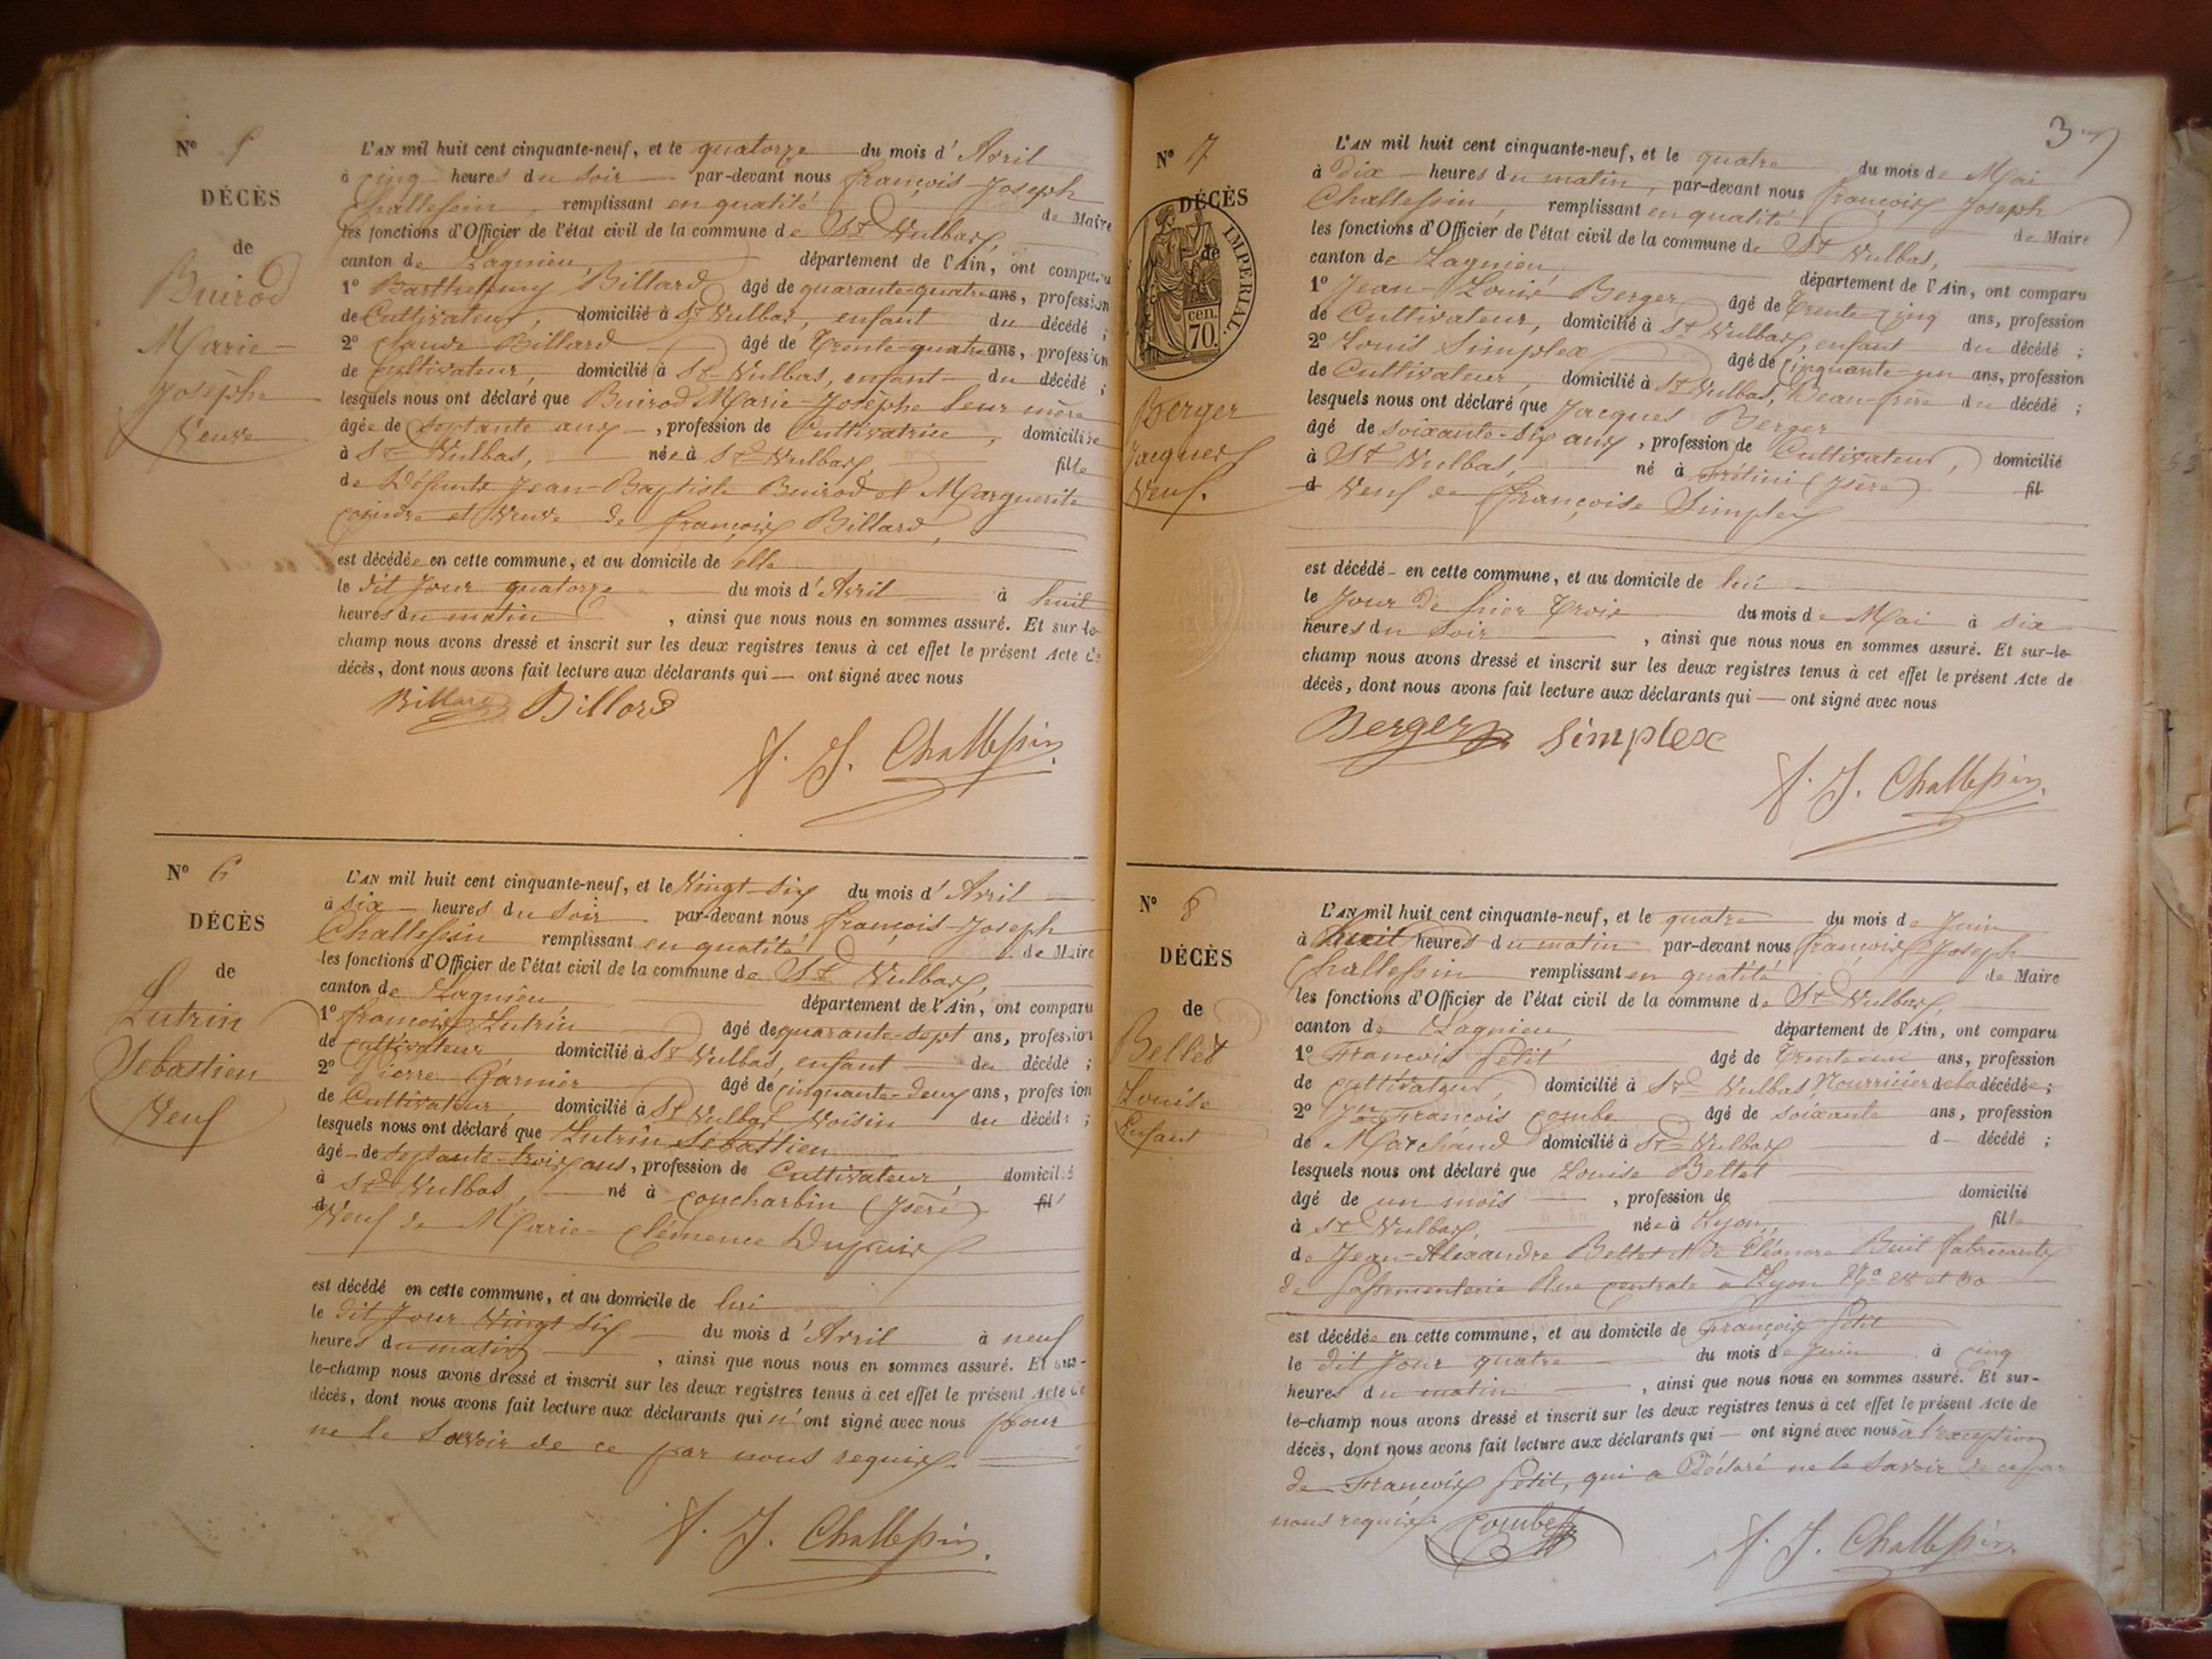 Nº 5
DÉCÈS
de
Buirod
Marie-
Josèphe
Veuve
L'AN mil huit cent cinquante-neuf, et le quatorze du mois d'Avril
à cinq heures du soir par-devant nous françois-Joseph
Challessin, remplissant en qualité de Maire
les fonctions d'Officier de l'état civil de la commune de St Vulbas,
canton de Lagnieu, département de l'Ain, ont comparu
1º Barthelemy Billard âgé de quarante-quatre ans, profession
de Cultivateur, domicilié à St Vulbas, enfant du décédé ;
2º Claude Billard âgé de trente-quatre ans, profession
de Cultivateur, domicilié à St Vulbas, enfant du décédé ;
lesquels nous ont déclaré que Buirod Marie-Josèphe leur mère
âgée de septante ans, profession de Cultivatrice, domiciliée
à St Vulbas, née à St Vulbas, fille
de Défunts Jean-Baptiste Buirod et Marguerite
Coindre et Veuve de françois Billard,
est décédée en cette commune, et au domicile de elle
le dit jour quatorze du mois d'Avril à huit
heures du matin, ainsi que nous nous en sommes assuré. Et sur-le-
champ nous avons dressé et inscrit sur les deux registres tenus à cet effet le présent Acte de
décès, dont nous avons fait lecture aux déclarants qui — ont signé avec nous
Billard Billard
f. J. Challessin
Nº 6
DÉCÈS
de
Lutrin
Sebastien
Veuf
L'AN mil huit cent cinquante-neuf, et le Vingt-Six du mois d'Avril
à six heures du soir par-devant nous françois-Joseph
Challessin remplissant en qualité de Maire
les fonctions d'Officier de l'état civil de la commune de St Vulbas,
canton de Lagnieu, département de l'Ain, ont comparu
1º françois Lutrin âgé de quarante-sept ans, profession
de Cultivateur, domicilié à St Vulbas, enfant du décédé ;
2º Pierre Garnier âgé de cinquante-deux ans, profession
de Cultivateur, domicilié à St Vulbas Voisin du décédé ;
lesquels nous ont déclaré que Lutrin Sébastien
âgé de septante-trois ans, profession de Cultivateur, domicilié
à St Vulbas, né à Concharbin (Isère) fil
d Veuf de Marie-Clémence Dupuis
est décédé en cette commune, et au domicile de lui
le dit jour Vingt Six du mois d'Avril à neuf
heures du matin, ainsi que nous nous en sommes assuré. Et sur-
le-champ nous avons dressé et inscrit sur les deux registres tenus à cet effet le présent Acte de
décès, dont nous avons fait lecture aux déclarants qui n'ont signé avec nous pour
ne le savoir de ce par nous requis.
f. J. Challessin
3
Nº 7
DÉCÈS
de
IMPÉRIAL.
cen.
70.
Berger
Jacques
Veuf.
L'AN mil huit cent cinquante-neuf, et le quatre du mois de Mai
à Dix heures du matin, par-devant nous françois Joseph
Challessin, remplissant en qualité de Maire
les fonctions d'Officier de l'état civil de la commune de St Vulbas,
canton de Lagnieu, département de l'Ain, ont comparu
1º Jean-Louis Berger âgé de trente-cinq ans, profession
de Cultivateur, domicilié à St Vulbas, enfant du décédé ;
2º Louis Simplex âgé de cinquante-un ans, profession
de Cultivateur, domicilié à St Vulbas, Beau-frère du décédé ;
lesquels nous ont déclaré que Jacques Berger
âgé de soixante-six ans, profession de Cultivateur, domicilié
à St Vulbas, né à (Isère) fil
d Veuf de françoise Simplex
est décédé en cette commune, et au domicile de lui
le Jour de hier trois du mois de Mai à six
heures du soir, ainsi que nous nous en sommes assuré. Et sur-le-
champ nous avons dressé et inscrit sur les deux registres tenus à cet effet le présent Acte de
décès, dont nous avons fait lecture aux déclarants qui — ont signé avec nous
Berger Simplex
f. J. Challessin
Nº 8
DÉCÈS
de
Bellet
Louise
Enfant
L'AN mil huit cent cinquante-neuf, et le quatre du mois de Juin
à huit heures du matin par-devant nous françois Joseph
Challessin remplissant en qualité de Maire
les fonctions d'Officier de l'état civil de la commune de St Vulbas,
canton de Lagnieu, département de l'Ain, ont comparu
1º François Petit âgé de trente un ans, profession
de cultivateur, domicilié à St Vulbas, Nourricier de la décédée ;
2º Jn François Combe âgé de soixante ans, profession
de Marchand domicilié à St Vulbas d — décédé ;
lesquels nous ont déclaré que Louise Bellet
âgé de un mois, profession de domicilié
à St Vulbas, née à Lyon, fille
de Jean-Alexandre Bellet et de Eléonore Buit fabricants
de Passementerie Rue centrale à Lyon Nº 28 et 30
est décédée en cette commune, et au domicile de François Petit
le dit jour quatre du mois de Juin à cinq
heures du matin, ainsi que nous nous en sommes assuré. Et sur-
le-champ nous avons dressé et inscrit sur les deux registres tenus à cet effet le présent Acte de
décès, dont nous avons fait lecture aux déclarants qui — ont signé avec nous à l'exception
de François Petit, qui a Déclaré ne le savoir de ce par
nous requis. Combe
f. J. Challessin